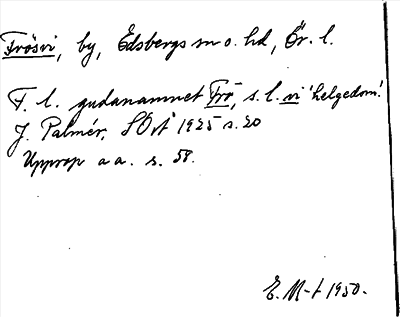 Frösvi, by, Edsbergs sn o. hd, Ör. l.
F. l. gudanamnet Frö-, s. l. vi 'helgedom'.
J. Palmér, SOÅ 1925 s. 20
Upprop a a. s. 58.
E. M-t 1950.